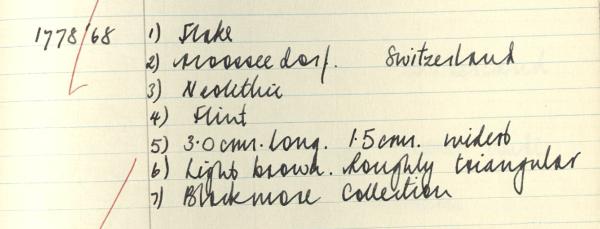 1778/68 1) Flake
2) Moossee dorf. Switzerland
3) Neolithic
4) Flint
5) 3.0 cms. Long. 1.5 cms. widest
6) Light brown. Roughly triangular
7) Blackmore Collection